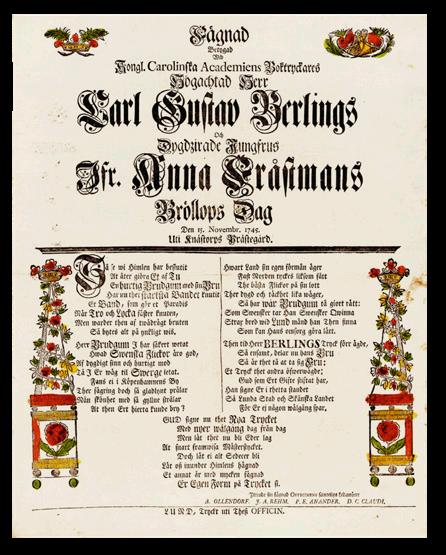 Fägnad
Betygad
Wid
Kongl. Carolinska Academiens Boktryckares
Högachtad Herr
Carl Gustav Berlings
Och
Dygdzirade Jungfrus
Jfr. Anna Cråstmans
Bröllops Dag
Den 15. Novembr. 1745.
Uti Knästorps Prästegård.
Så s'e wi Himlen har beslutit
At åter göra Et af Tu
En hurtig Brudgum med sin Bru
Har im ther starcka Bandet knutit
Et Band, som gör et Paradis
När Tro och Locka fäster knuten,
Men warder then af twädrägt bruten
Så hytes alt på ynkligt wis.
Herr Brudgum I har säkert wetat
Hwad Swenska Flickor äro god,
Af dygdigt sinn och hurtigt mod
Tå I Er wåg til Swerge letat.
Fans ei i Köpenhamnens By
Ther fägring doch så gladtynt prålar
När skönhet med så gyllne strålar
At then Ert hierta kunde bry?
Hwart Land sin egen förmån äger
Fast Norden tyckes likasom fått
The bästa Flickor på sin lott
Ther dygd och räckhet lika wäger,
Så har wår Brudgum tå giort rått:
Som Swensker tar Han Swensker Qwinna
Strax bred wid Lund månd han Then finna
Som kan Hans omsorg göra lått.
Then tid Herr BERLINGS Tryck före ågde,
Så ensamt, delar nu hans Bru
Så är thet tå at ta sig Fru:
Et Tryck thet andra öfwerwägde;
Gud som Ert Gifte stiftat har,
Han signe Er i thetta stander
Så Lunda Stad och Skånska Landet
För Er ei någon wålgång spar,
GUD signe nu thet Nya Trycket
Med nyer wålgång dag från dag
Men låt thet nu bli Eder lag
At snart framwisa Mästerstycket.
Doch låt ei alt Sedeer bli
Låt oss inunder Himlens hägnad
Et annat år med mycken fägnad
Er Egen Form på Trycket si.
A. OLLENDORF. J. A. REHM. P. E. ANANDER. D. C. CLAUDI.
LUND, Tryckt uti Thess OFFICIN.